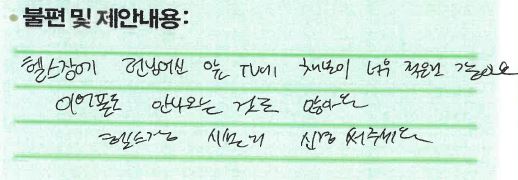 불편 및 제안내용:
헬스장에 런닝머신 앞 TV에 채널이 너무 적은것 같아요
이어폰도 안나오는 것도 많아요
헬스장 시설관리 신경 써주세요